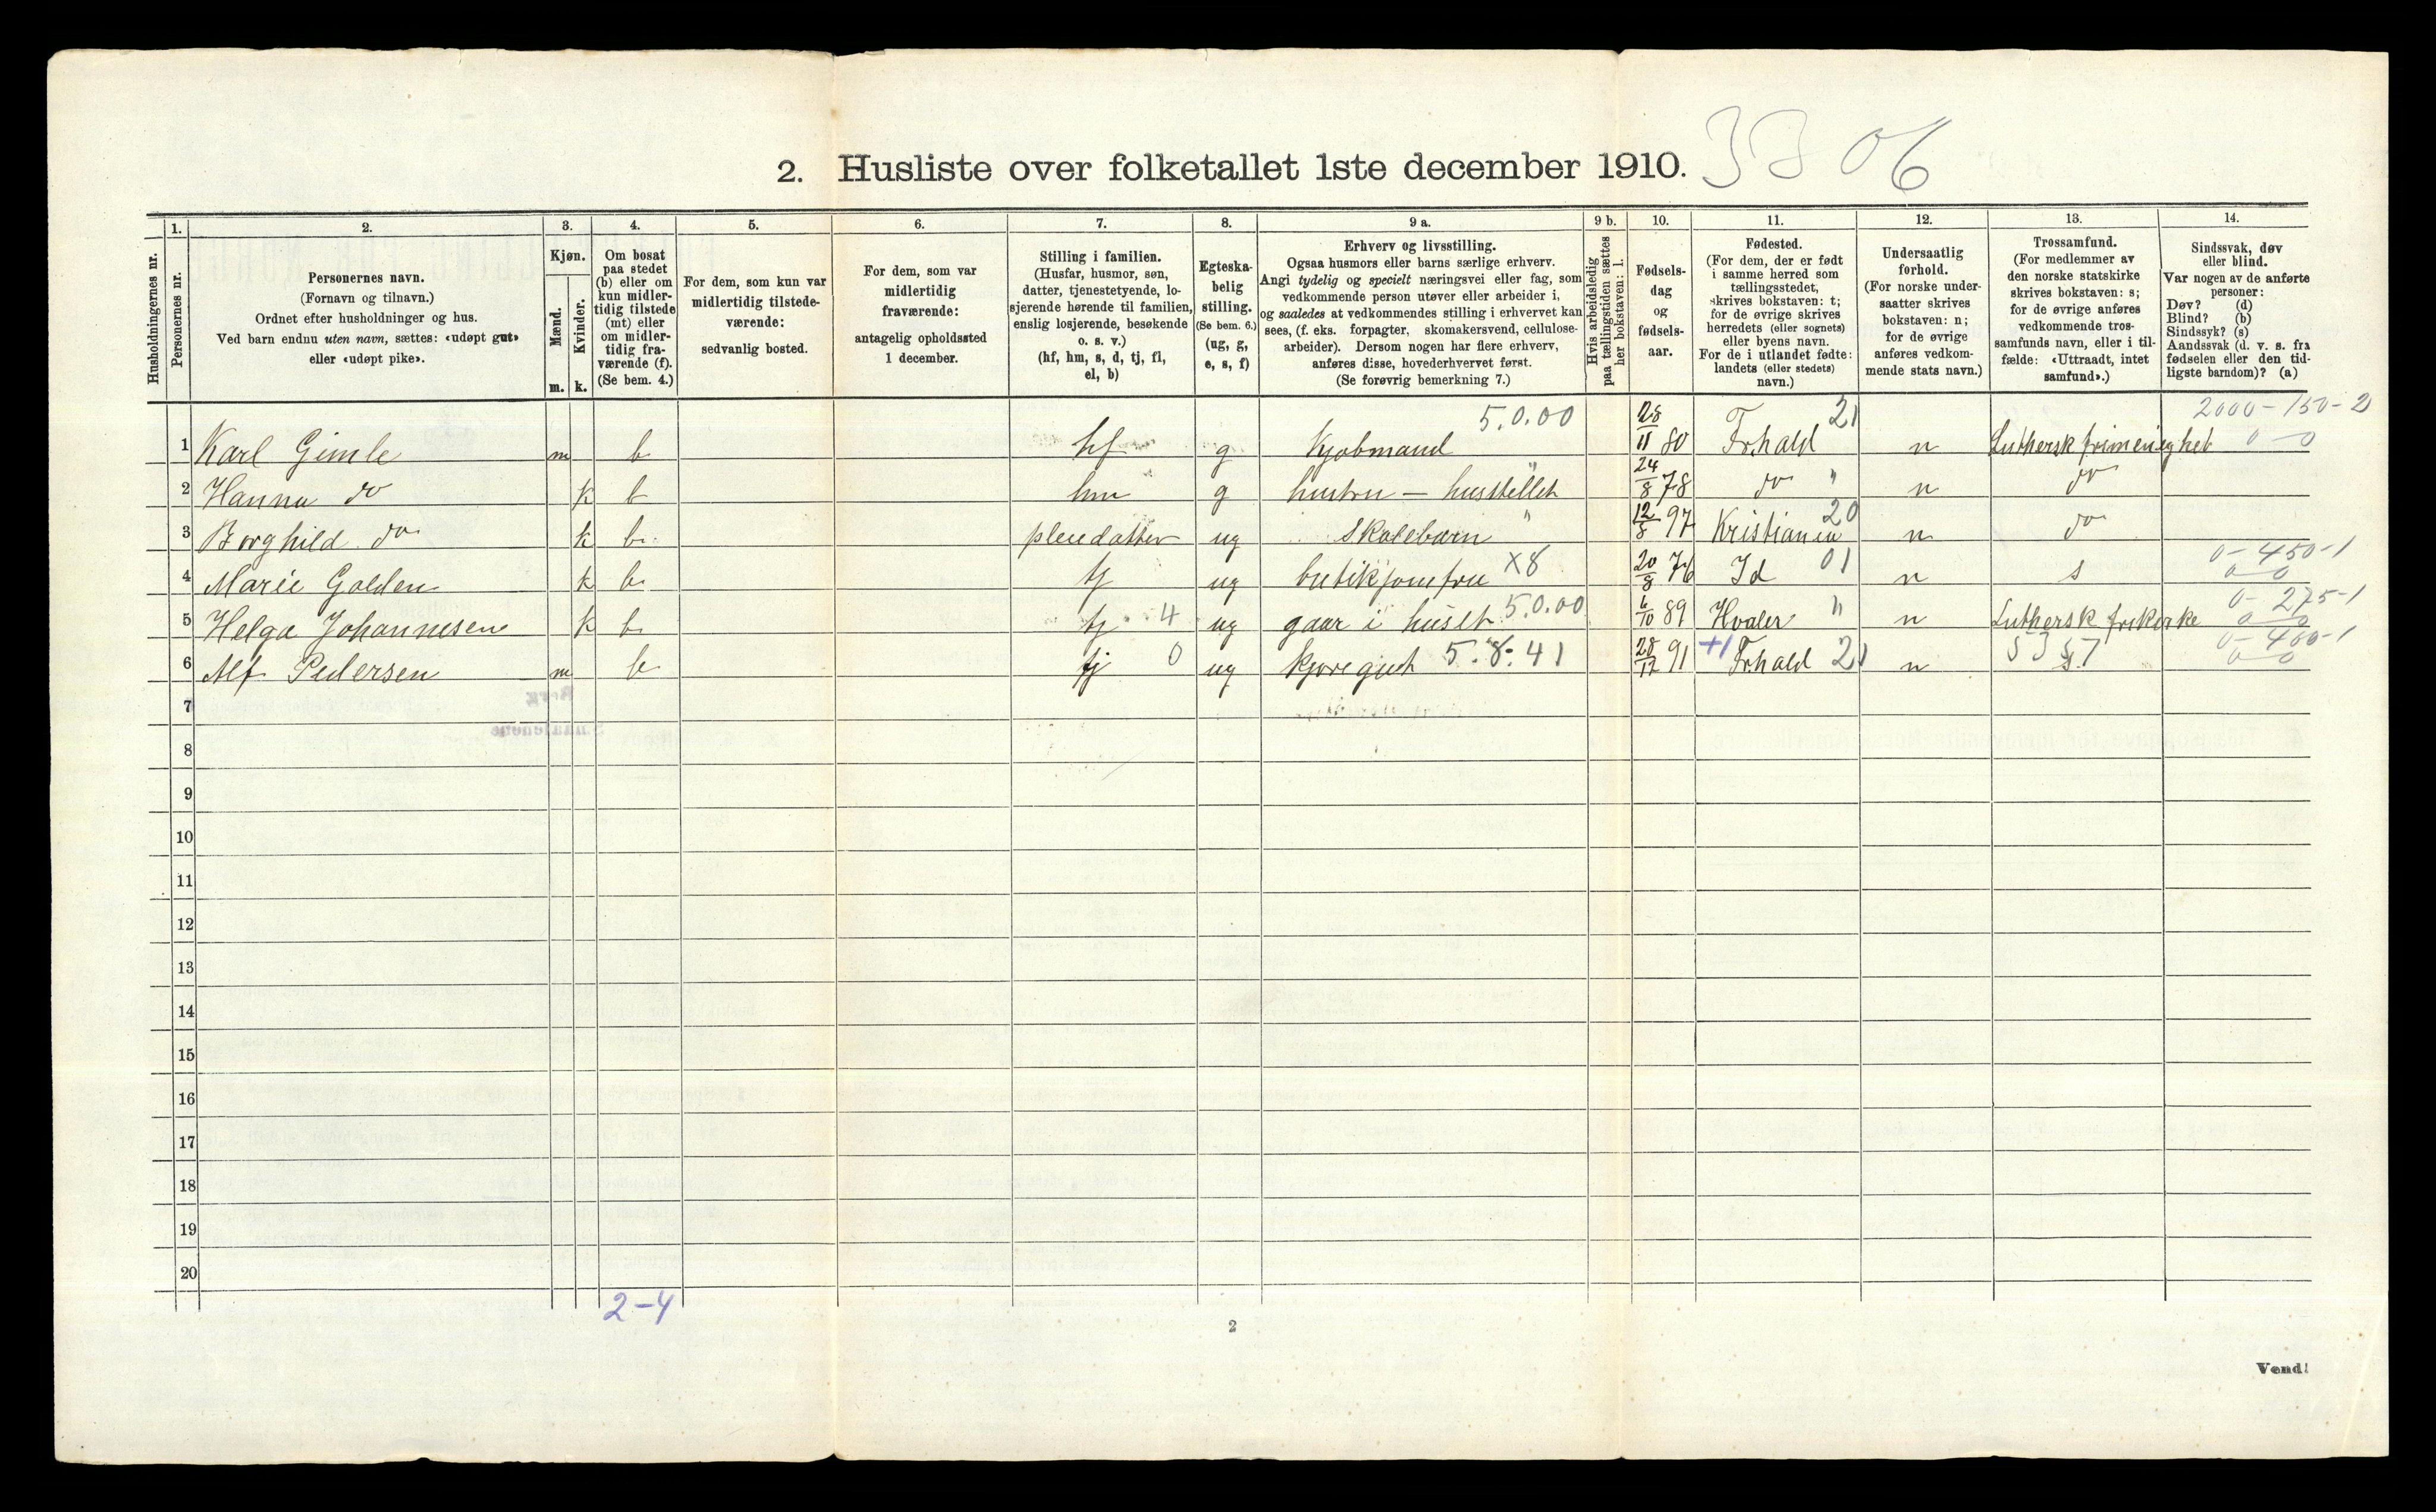 2. Husliste over folketallet 1ste december 1910. 3306
1. 2. 3. 4. 5. 6. 7. 8. 9 a. 9 b. 10. 11. 12. 13. 14.
Husholdningernes nr.
Personernes nr.
Personernes navn.
(Fornavn og tilnavn.)
Ordnet efter husholdninger og hus.
Ved barn endnu uten navn, sættes: «udøpt gut»
eller «udøpt pike».
Kjøn.
Mænd.
Kvinder.
m. k.
Om bosat
paa stedet
(b) eller om
kun midler-
tidig tilstede
(mt) eller
om midler-
tidig fra-
værende (f).
(Se bem. 4.)
For dem, som kun var
midlertidig tilstede-
værende:
sedvanlig bosted.
For dem, som var
midlertidig
fraværende:
antagelig opholdssted
1 december.
Stilling i familien.
(Husfar, husmor, søn,
datter, tjenestetyende, lo-
sjerende hørende til familien,
enslig losjerende, besøkende
o. s. v.)
(hf, hm, s, d, tj, fl,
el, b)
Egteska-
belig
stilling.
(Se bem. 6.)
(ug, g,
e, s, f)
Erhverv og livsstilling.
Ogsaa husmors eller barns særlige erhverv.
Angi tydelig og specielt næringsvei eller fag, som
vedkommende person utøver eller arbeider i,
og saaledes at vedkommendes stilling i erhvervet kan
sees, (f. eks. forpagter, skomakersvend, cellulose-
arbeider). Dersom nogen har flere erhverv,
anføres disse, hovederhvervet først.
(Se forøvrig bemerkning 7.)
Hvis arbeidsledig
paa tællingstiden sættes
her bokstaven: l.
Fødsels-
dag
og
fødsels-
aar.
Fødested.
(For dem, der er født
i samme herred som
tællingsstedet,
skrives bokstaven: t;
for de øvrige skrives
herredets (eller sognets)
eller byens navn.
For de i utlandet fødte:
landets (eller stedets)
navn.)
Undersaatlig
forhold.
(For norske under-
saatter skrives
bokstaven: n;
for de øvrige
anføres vedkom-
mende stats navn.)
Trossamfund.
(For medlemmer av
den norske statskirke
skrives bokstaven: s;
for de øvrige anføres
vedkommende tros-
samfunds navn, eller i til-
fælde: «Uttraadt, intet
samfund».)
Sindssvak, døv
eller blind.
Var nogen av de anførte
personer:
Døv? (d)
Blind? (b)
Sindssyk? (s)
Aandssvak (d. v. s. fra
fødselen eller den tid-
ligste barndom)? (a)
5.0.00 21 2000-150-2
1 Karl Gimle m b hf g kjøbmand 28/11 80 Frhald n Luthersk frimenighet 0-0
2 Hanna do k b hm g hustru - husstellet " 24/8 78 do " n do
3 Borghild do k b pleiedatter ug skolebarn " 12/8 97 Kristiania 20 n do
4 Marie Golden k b tj ug butikjomfru X8 20/8 76 Id 01 n s 0-450-1 0-0
5 Helga Johannesen k b tj 4 ug gaar i huset 5.0.00 6/10 89 Hvaler " n Luthersk frikirke 0-275-1 0-0
6 Alf Pedersen m b tj 0 ug kjøregut 5.8.41 28/12 91 +1 Frhald 21 n s 5357 0-400-1 0-0
7
8
9
10
11
12
13
14
15
16
17
18
19
20
2-4
2
Vend!